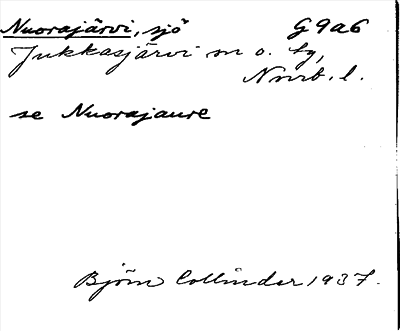 Nuorajärvi, sjö G9a6
Jukkasjärvi sn o. tg,
Nnrb. l.
se Nuorajaure
Björn Collinder 1937.